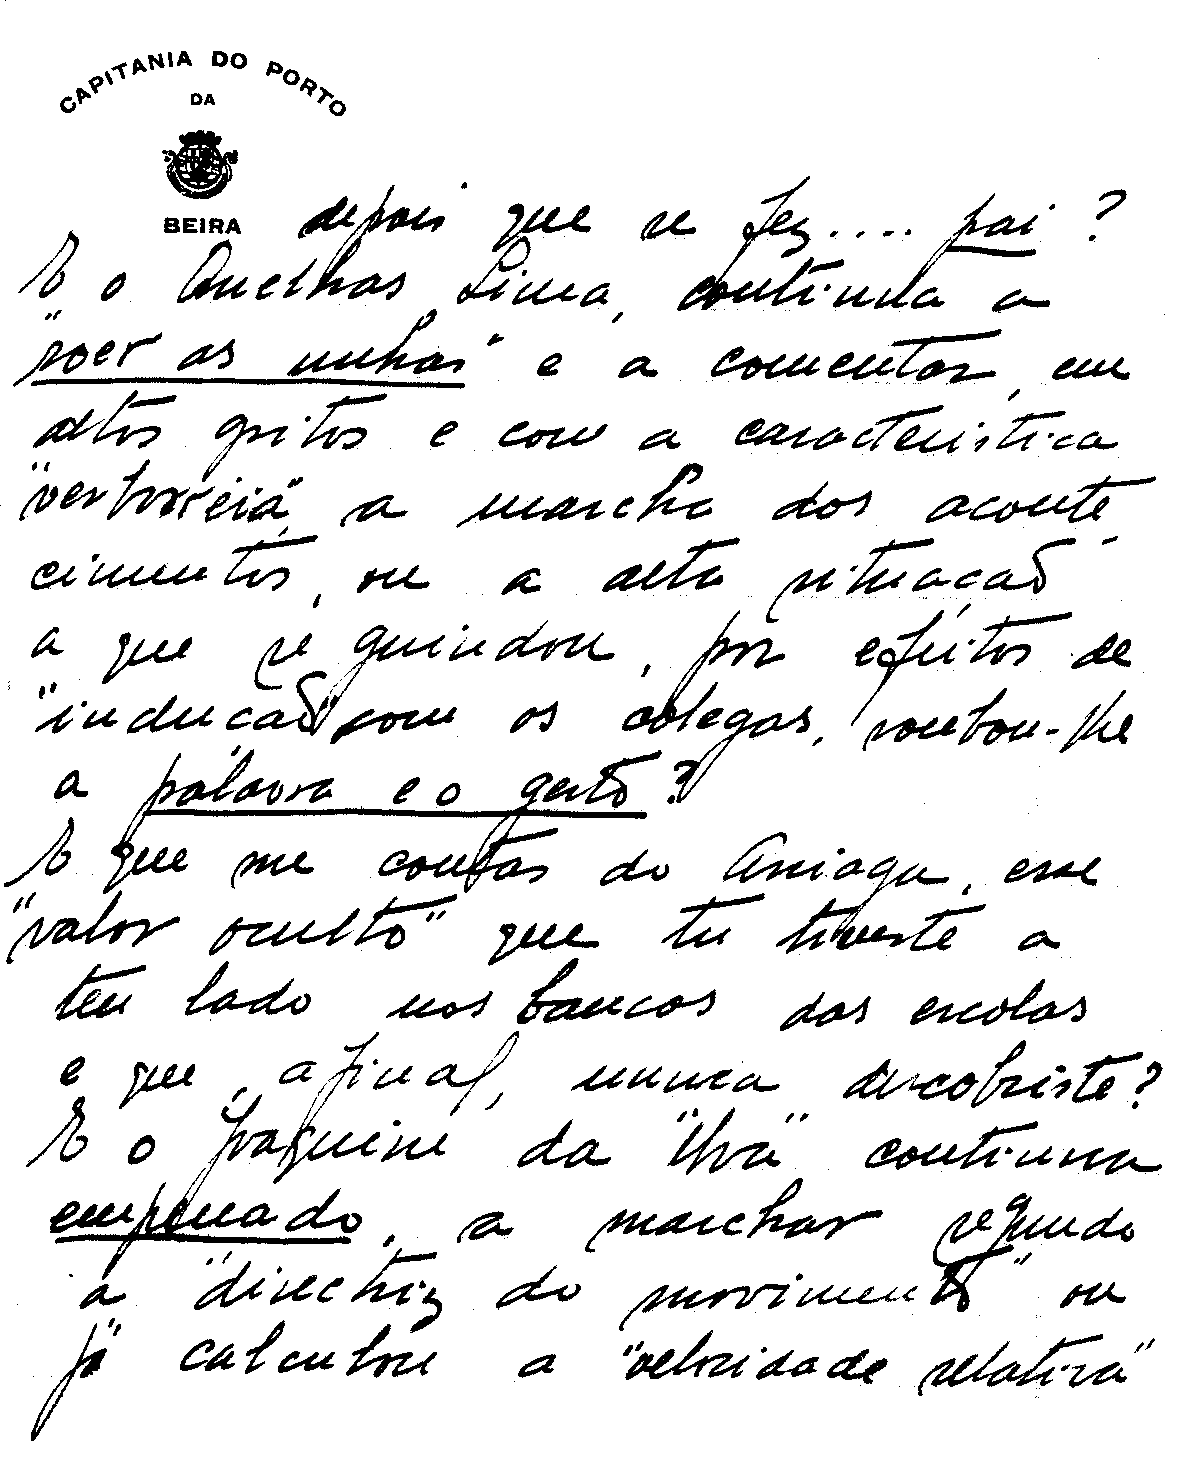 CAPITANIA DO PORTO
DA
BEIRA
depois que se fez.... pai ?
E o Quelhas Lima, continua a
"roer as unhas" e a comentar, em
altos gritos e com a caracteristica
"verborreia", a marcha dos aconte-
cimentos, ou a alta situação
a que se guindou, por efeitos de
"indução" com os colegas, roubou-lhe
a palavra e o gesto?
E que me contas do Aniagu, esse
"valor oculto" que tu tiveste a
teu lado nos bancos das escolas
e que, afinal, nunca descobriste?
E o Joaquim da "Uva" continua
empenado, a marchar segundo
a "directriz do movimento" ou
já calculou a "velocidade relativa"